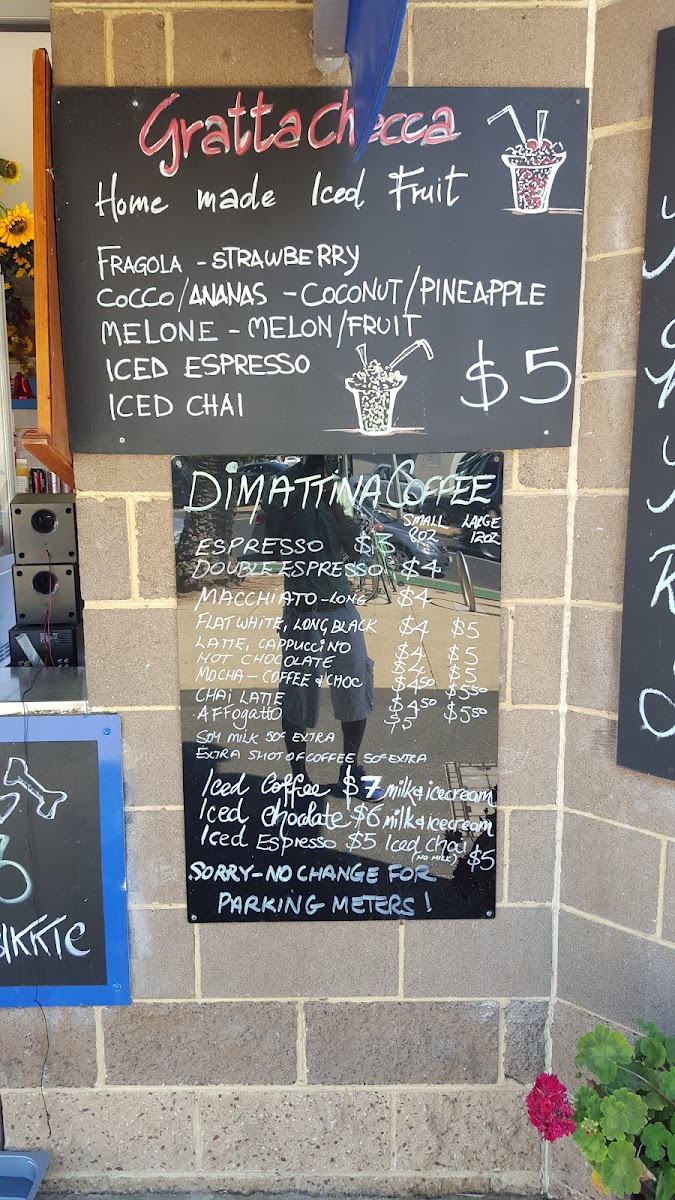 Grattachecca
Home made Iced Fruit
FRAGOLA - STRAWBERRY
COCCO/ANANAS - COCONUT/PINEAPPLE
MELONE - MELON/FRUIT
ICED ESPRESSO
ICED CHAI
$5
DIMATTINA COFFEE
SMALL LARGE
8OZ 12OZ
ESPRESSO $3
DOUBLE ESPRESSO $4
MACCHIATO - LONG $4
FLAT WHITE, LONG BLACK $4 $5
LATTE, CAPPUCCINO $4 $5
HOT CHOCOLATE $4 $5
MOCHA - COFFEE & CHOC $4.50 $5.50
CHAI LATTE $4.50 $5.50
AFFOGATTO $5
SOY MILK 50¢ EXTRA
EXTRA SHOT OF COFFEE 50¢ EXTRA
Iced Coffee $7 milk & icecream
Iced Chocolate $6 milk & icecream
Iced Espresso $5 Iced Chai
(NO MILK) $5
SORRY - NO CHANGE FOR
PARKING METERS!